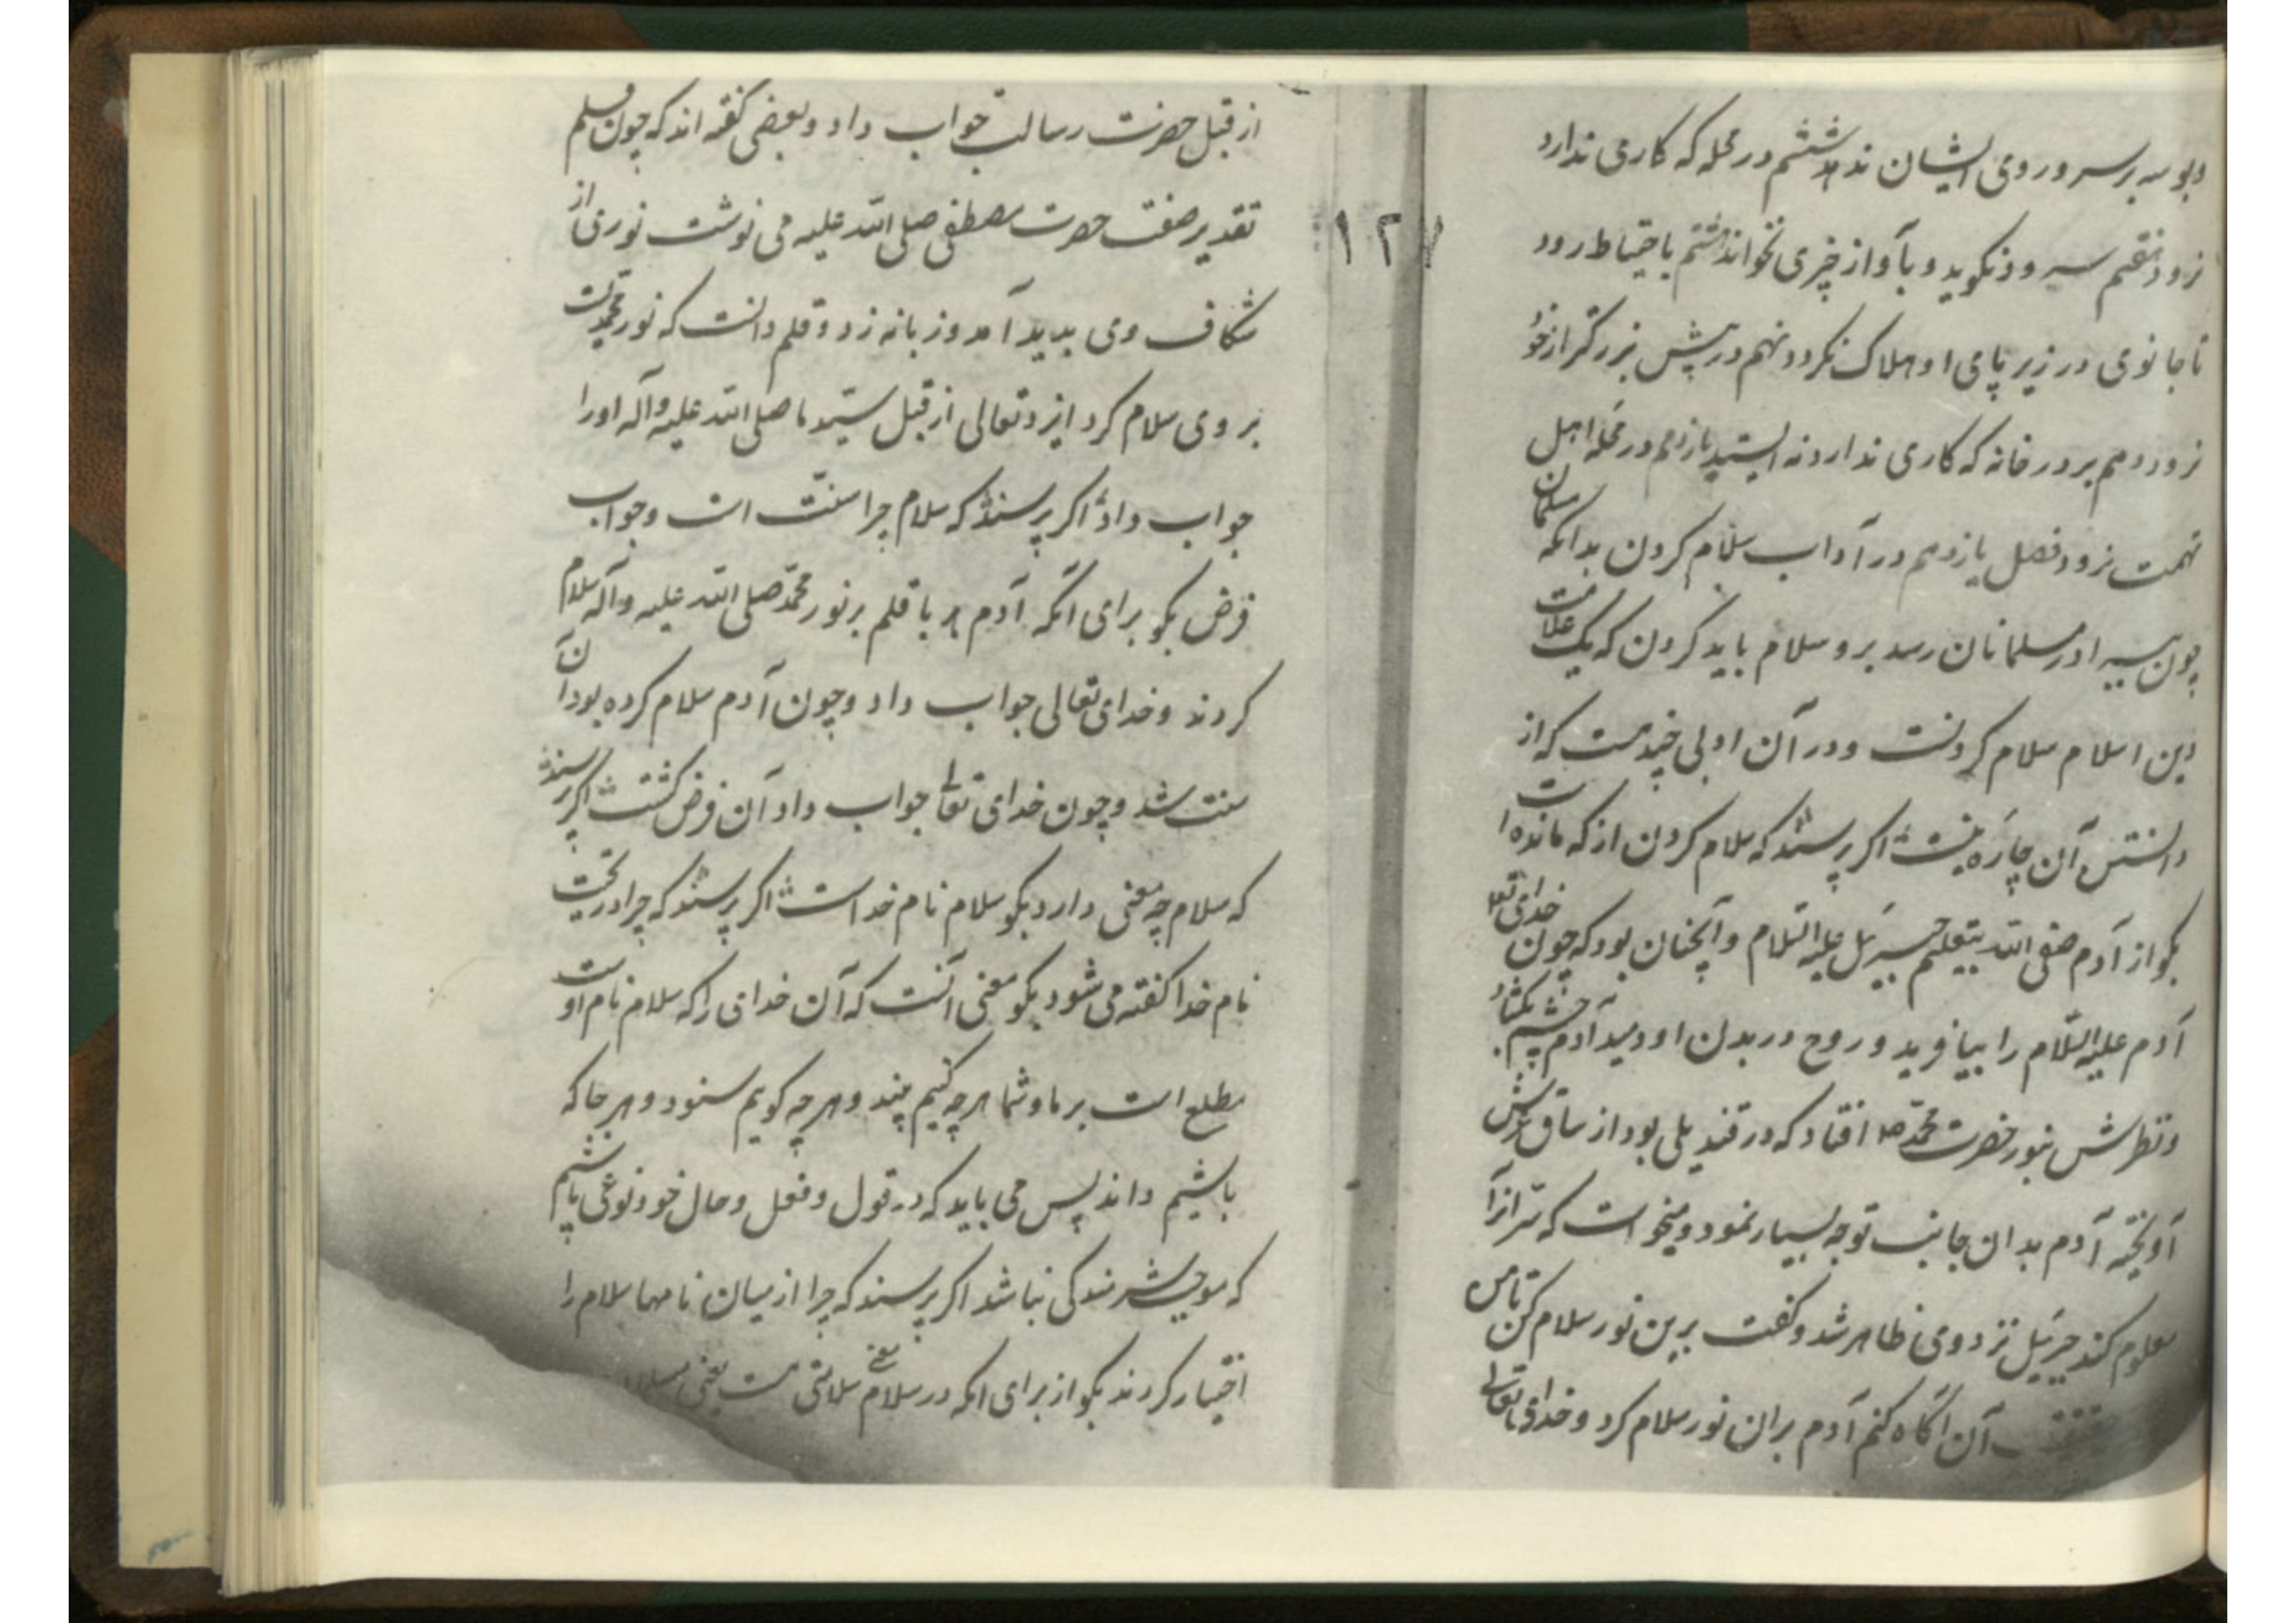 وبوسه بر سر و روی ایشان ندهد ششم در محله که کاری ندارد
نرود هفتم سرود نکوید و بآواز چیزی نخواند هشتم باحتیاط رود
تا جانوری در زیر پای او هلاک نکردد نهم در پیش بزرکتر از خود
نرود دهم بر در خانه که کاری ندارد نه ایستد یازدهم در محله اهل
تهمت نرود فصل یازدهم در آداب سلام کردن بدانکه مسلمان
چون بسیر او در مسلمانان رسد برو سلام باید کردن که یک علامت
دین اسلام سلام کردنست و در آن اولی چندست که از
دانستن آن چاره نیست اکر پرسند که سلام کردن از که مانده است
بکو از آدم صفی الله بتعلیم جبرئیل علیه السلام و آنچنان بود که چون خدای تعالی
آدم علیه السّلام را بیافرید و روح در بدن او دمید آدم چشم بکشاد
و نظرش بنور حضرت محمّد صلعم افتاد که در قندیلی بود از ساق عرش
آویخته آدم بدان جانب توجه بسیار نمود و میخواست که سرّ از آن
معلوم کند جبرئیل نزد وی ظاهر شد و کفت برین نور سلام کن تا من
آن آکاه کنم آدم بران نور سلام کرد و خدای تعالی
۱۲۷
از قبل حضرت رسالت جواب داد و بعضی کفته اند که چون قلم
تقدیر صفت حضرت مصطفی صلی الله علیه می نوشت نوری از
شکاف وی بدید آمد و زبانه زد و قلم دانست که نور محمّدیست
بر وی سلام کرد ایزد تعالی از قبل سیّد ما صلی الله علیه و آله او را
جواب داد اکر پرسند که سلام چرا سنّت است و جواب
فرض بکو برای آنکه آدم ع با قلم بر نور محمّد صلی الله علیه و آله سلام
کردند و خدای تعالی جواب داد و چون آدم سلام کرده بود آن
سنت شد و چون خدای تعالی جواب داد آن فرض کشت اکر پرسند
که سلام چه معنی دارد بکو سلام نام خداست اکر پرسند که چرا در تحیّت
نام خدا کفته می شود بکو معنی آنست که آن خدای را که سلام نام اوست
مطلع است بر ما و شما هرچه کنیم بیند و هرچه کویم شنود و هر جا که
باشیم داند پس می باید که در قول و فعل و حال خود نوعی باشیم
که موجب شرمندکی نباشد اکر پرسند که چرا از میان نامها سلام را
اختیار کردند بکو از برای آنکه در سلام معنی سلامتی هست یعنی